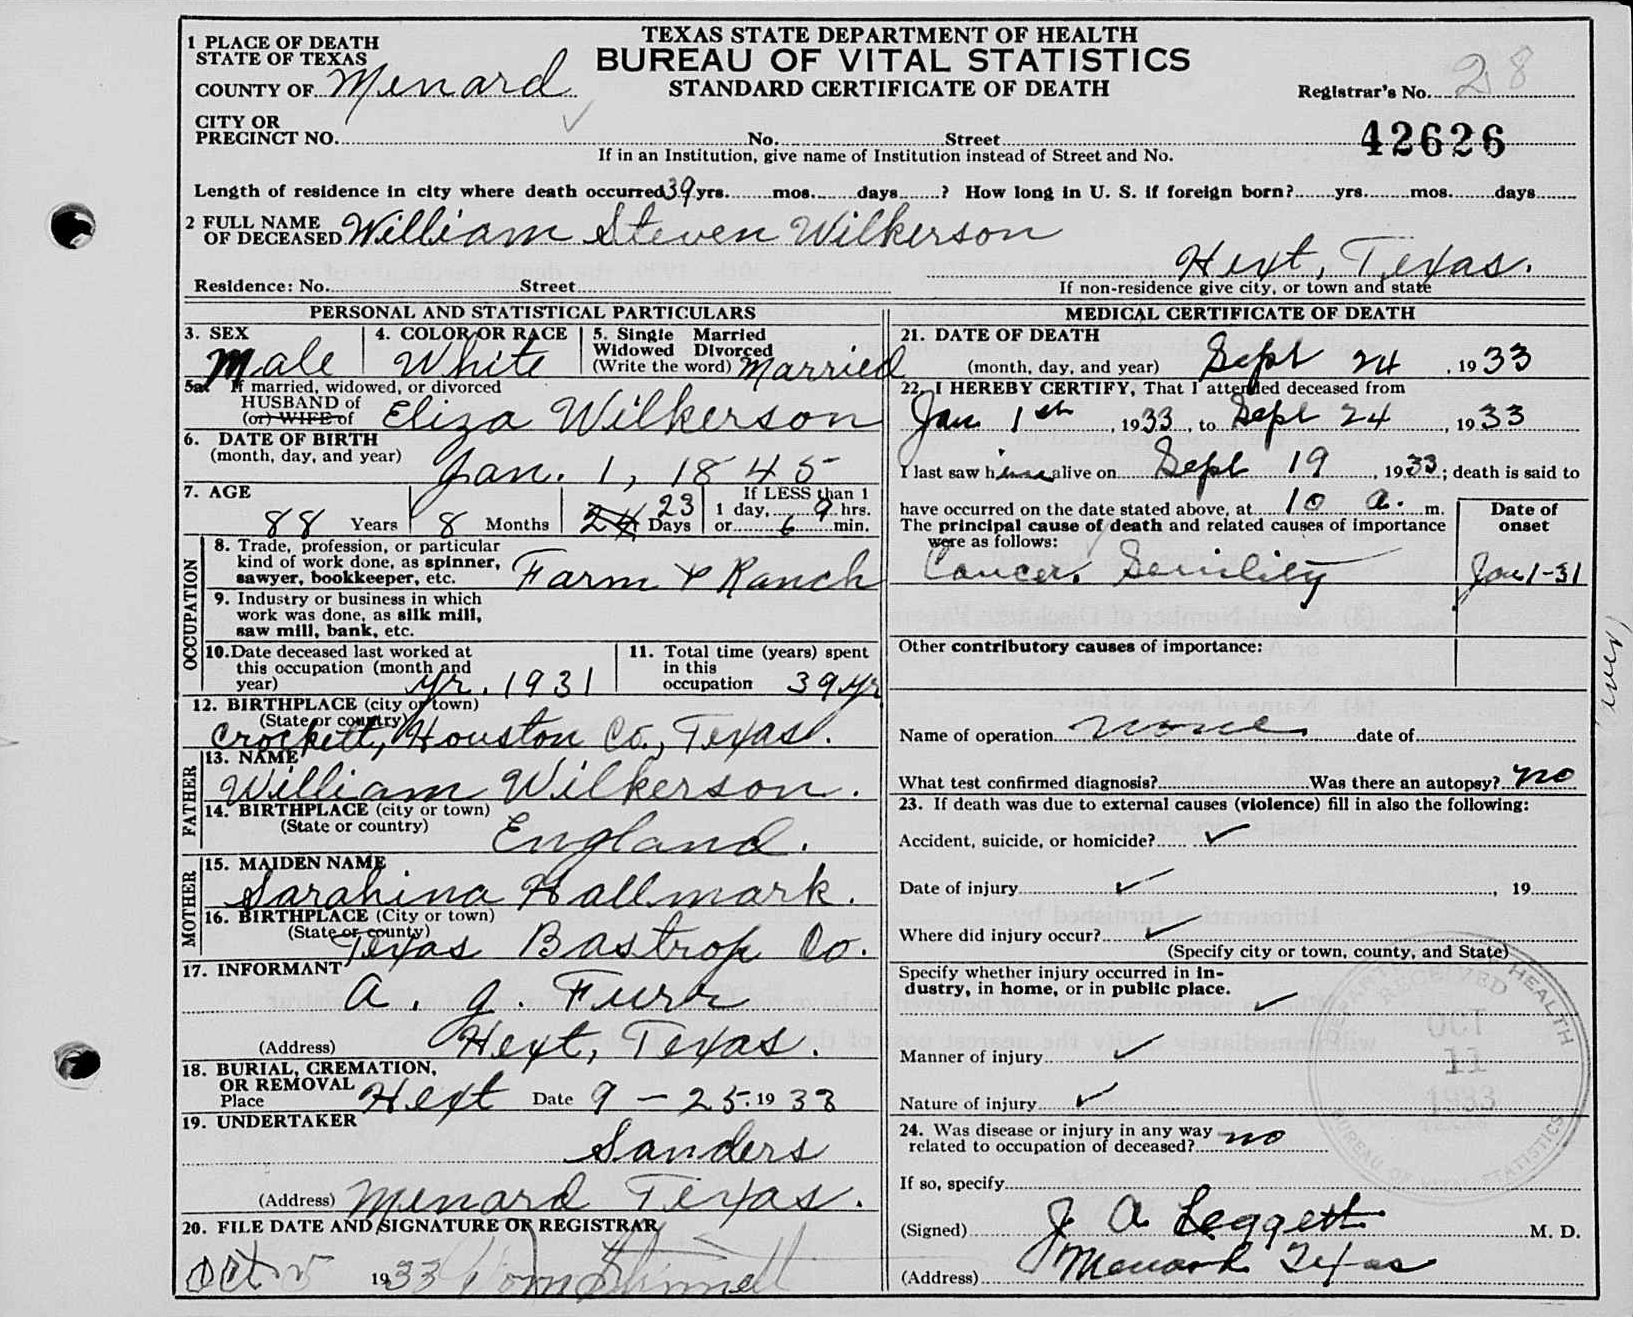 TEXAS STATE DEPARTMENT OF HEALTH
BUREAU OF VITAL STATISTICS
STANDARD CERTIFICATE OF DEATH
1 PLACE OF DEATH
STATE OF TEXAS
COUNTY OF Menard
Registrar's No. 28
42626
CITY OR
PRECINCT NO. No. Street
If in an Institution, give name of Institution instead of Street and No.
Length of residence in city where death occurred 39 yrs. mos. days ? How long in U. S. if foreign born? yrs. mos. days
2 FULL NAME
OF DECEASED William Steven Wilkerson
Hext, Texas.
Residence: No. Street If non-residence give city, or town and state
PERSONAL AND STATISTICAL PARTICULARS
3. SEX Male
4. COLOR OR RACE White
5. Single Married
Widowed Divorced
(Write the word) Married
5a. If married, widowed, or divorced
HUSBAND of
(or) WIFE of Eliza Wilkerson
6. DATE OF BIRTH
(month, day, and year) Jan. 1, 1845
7. AGE
88 Years 8 Months 24 23 Days
If LESS than 1
1 day, 9 hrs.
or 6 min.
OCCUPATION
8. Trade, profession, or particular
kind of work done, as spinner,
sawyer, bookkeeper, etc. Farm & Ranch
9. Industry or business in which
work was done, as silk mill,
saw mill, bank, etc.
10. Date deceased last worked at
this occupation (month and
year) yr. 1931
11. Total time (years) spent
in this
occupation 39 yr
12. BIRTHPLACE (city or town)
(State or country)
Crockett, Houston Co., Texas.
FATHER
13. NAME
William Wilkerson.
14. BIRTHPLACE (city or town)
(State or country) England.
MOTHER
15. MAIDEN NAME
Sarahina Hallmark.
16. BIRTHPLACE (City or town)
(State or county)
Texas Bastrop Co.
17. INFORMANT
A. G. Furr
(Address) Hext, Texas.
18. BURIAL, CREMATION,
OR REMOVAL
Place Hext Date 9-25. 1933
19. UNDERTAKER
Sanders
(Address) Menard Texas.
20. FILE DATE AND SIGNATURE OF REGISTRAR
Oct 5 1933
MEDICAL CERTIFICATE OF DEATH
21. DATE OF DEATH
(month, day, and year) Sept 24, 1933
22. I HEREBY CERTIFY, That I attended deceased from
Jan 1st, 1933, to Sept 24, 1933
I last saw him alive on Sept 19, 1933; death is said to
have occurred on the date stated above, at 10 a. m.
The principal cause of death and related causes of importance
were as follows:
Date of
onset
Cancer. Senility Jan 1-31
Other contributory causes of importance:
Name of operation none date of
What test confirmed diagnosis? Was there an autopsy? no
23. If death was due to external causes (violence) fill in also the following:
Accident, suicide, or homicide? ✓
Date of injury ✓, 19
Where did injury occur? ✓
(Specify city or town, county, and State)
Specify whether injury occurred in in-
dustry, in home, or in public place. ✓
Manner of injury ✓
Nature of injury ✓
24. Was disease or injury in any way
related to occupation of deceased? no
If so, specify
(Signed) J. A. Leggett M. D.
(Address) Menard Texas
RECEIVED
OCT
11
1933
BUREAU OF VITAL STATISTICS
HEALTH
(over)